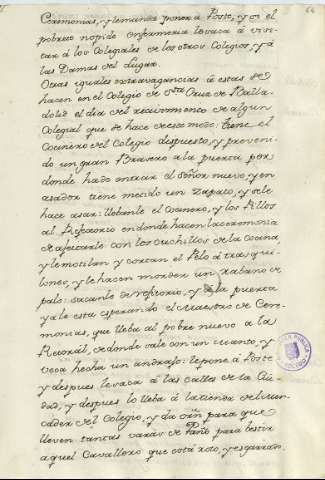 Ceremonias, y le manda poner à Poste, y si el
pobre no pide enfermeria le vaca à visi-
tar à los Colegiales de los otros Colegios, y à
las Damas del Lugar.
Otras iguales extravagancias à estas se
hacen en el Colegio de Sta Cruz de Valla-
dolid el dia del recivimiento de algun
Colegial que se hace de este modo: tiene el
Cocinero del Colegio despuesto, y preveni-
do un gran Brasero à la puerta por
donde hade entrar el señor nuevo, y en
asador tiene metido un Zapato, y se le
hace asar: llebanle el Cocinero, y los Pillos
al Refitorio en donde hacen la ceremonia
de afeitarle con los cuchillos de la Cocina,
y le motilan y cortan el Pelo à trasqui-
lones, y le hacen morder un rabano de
palo: sacanle de refitorio, y à la puerta
ya le esta esperando el Maestro de Cere-
monias, que lleba al pobre nuevo a la
de donde sale con un y
hecho un andrajo: le pone à Poste
y despues le saca à las calles de la Ciu-
dad, y despues lo lleba à la tienda del mer-
cader del Colegio, y da orñ para que
lleven tantas varas de Paño para bestir
aquel Cavallero que està roto, y esgarran.